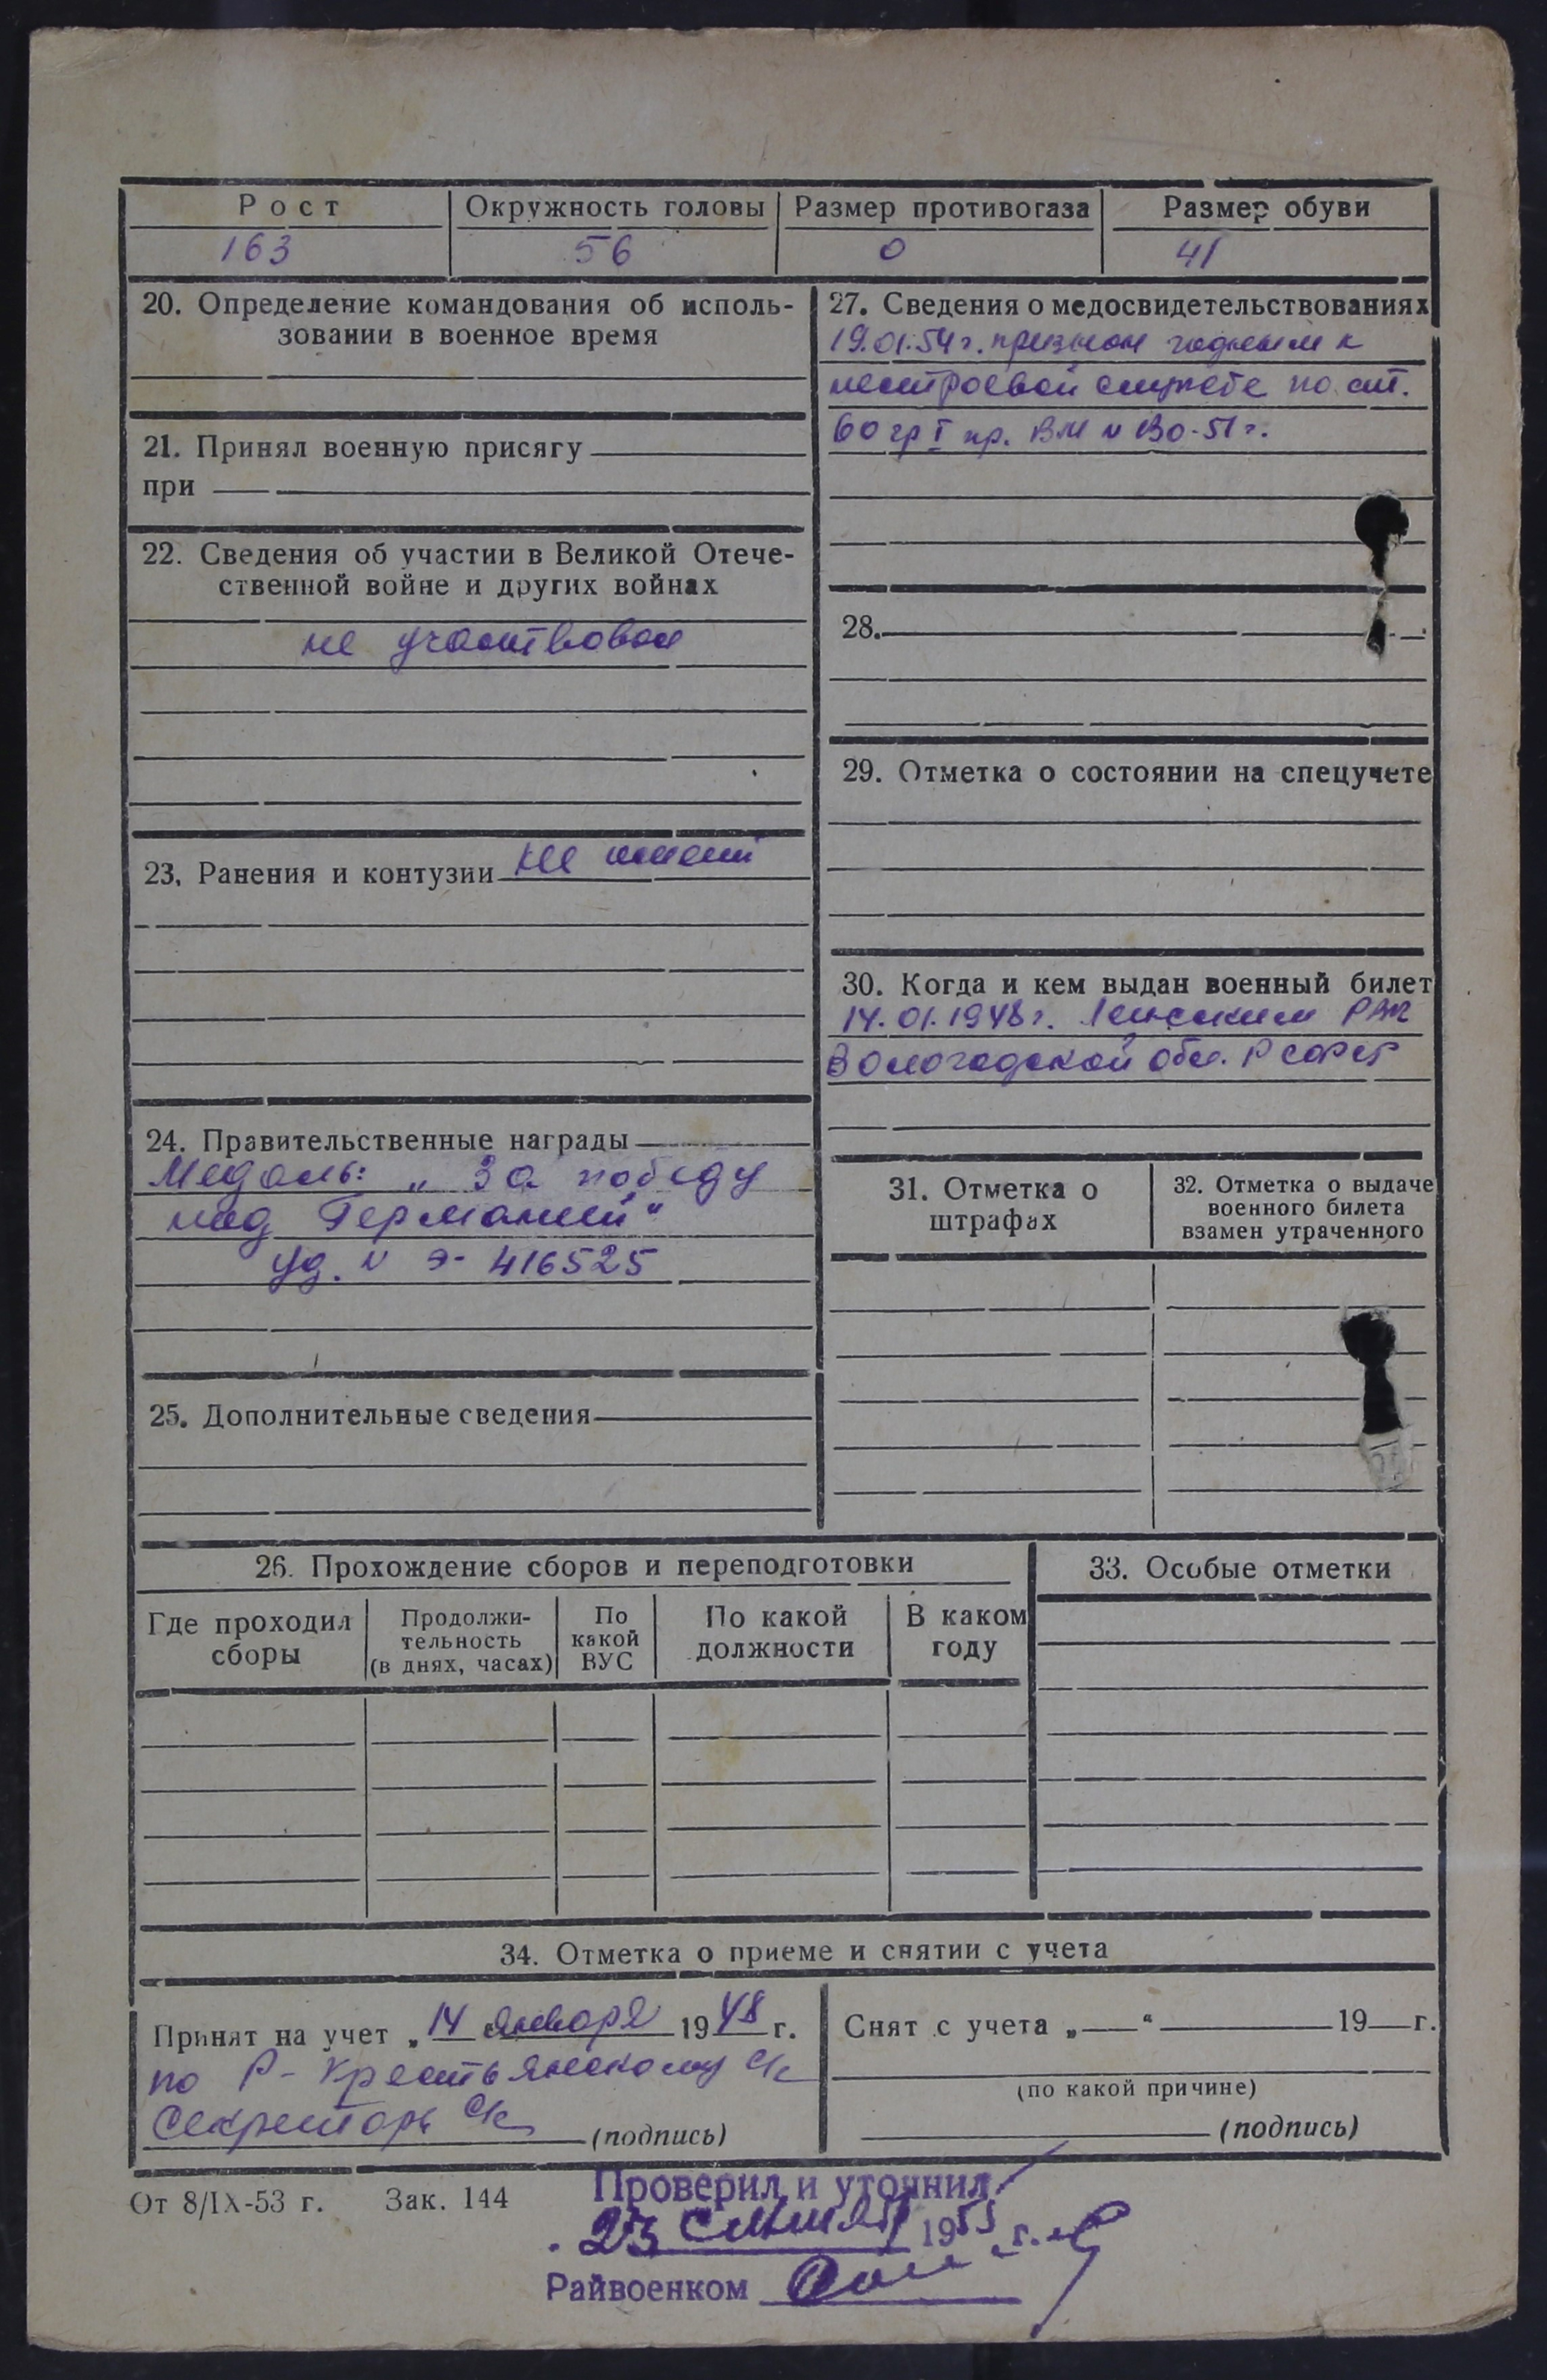 Рост Окружность головы Размер противогаза Размер обуви
163 56 0 41
20. Определение командования об исполь-
зовании в военное время
21. Принял военную присягу
при
22. Сведения об участии в Великой Отече-
ственной войне и других войнах
не участвовал
23. Ранения и контузии не имеет
24. Правительственные награды
Медаль: „За победу
над Германией“
уд. № Э- 416525
25. Дополнительные сведения
27. Сведения о медосвидетельствованиях
19.01.54 г. признан годным к
нестроевой службе по ст.
60 гр I пр. ВМ № 130-51 г.
28.
29. Отметка о состоянии на спецучете
30. Когда и кем выдан военный билет
14.01.1948 г. РВК
Вологодской обл. РСФСР
31. Отметка о
штрафах
32. Отметка о выдаче
военного билета
взамен утраченного
26. Прохождение сборов и переподготовки
Где проходил
сборы
Продолжи-
тельность
(в днях, часах)
По
какой
ВУС
По какой
должности
В каком
году
33. Особые отметки
34. Отметка о приеме и снятии с учета
Принят на учет „14 января 1948 г.
по Р-Крестьянскому с/с
Секретарь с/с (подпись)
Снят с учета „ “ 19 г.
(по какой причине)
(подпись)
От 8/IX-53 г. Зак. 144
Проверил и уточнил
23 1955 г.
Райвоенком